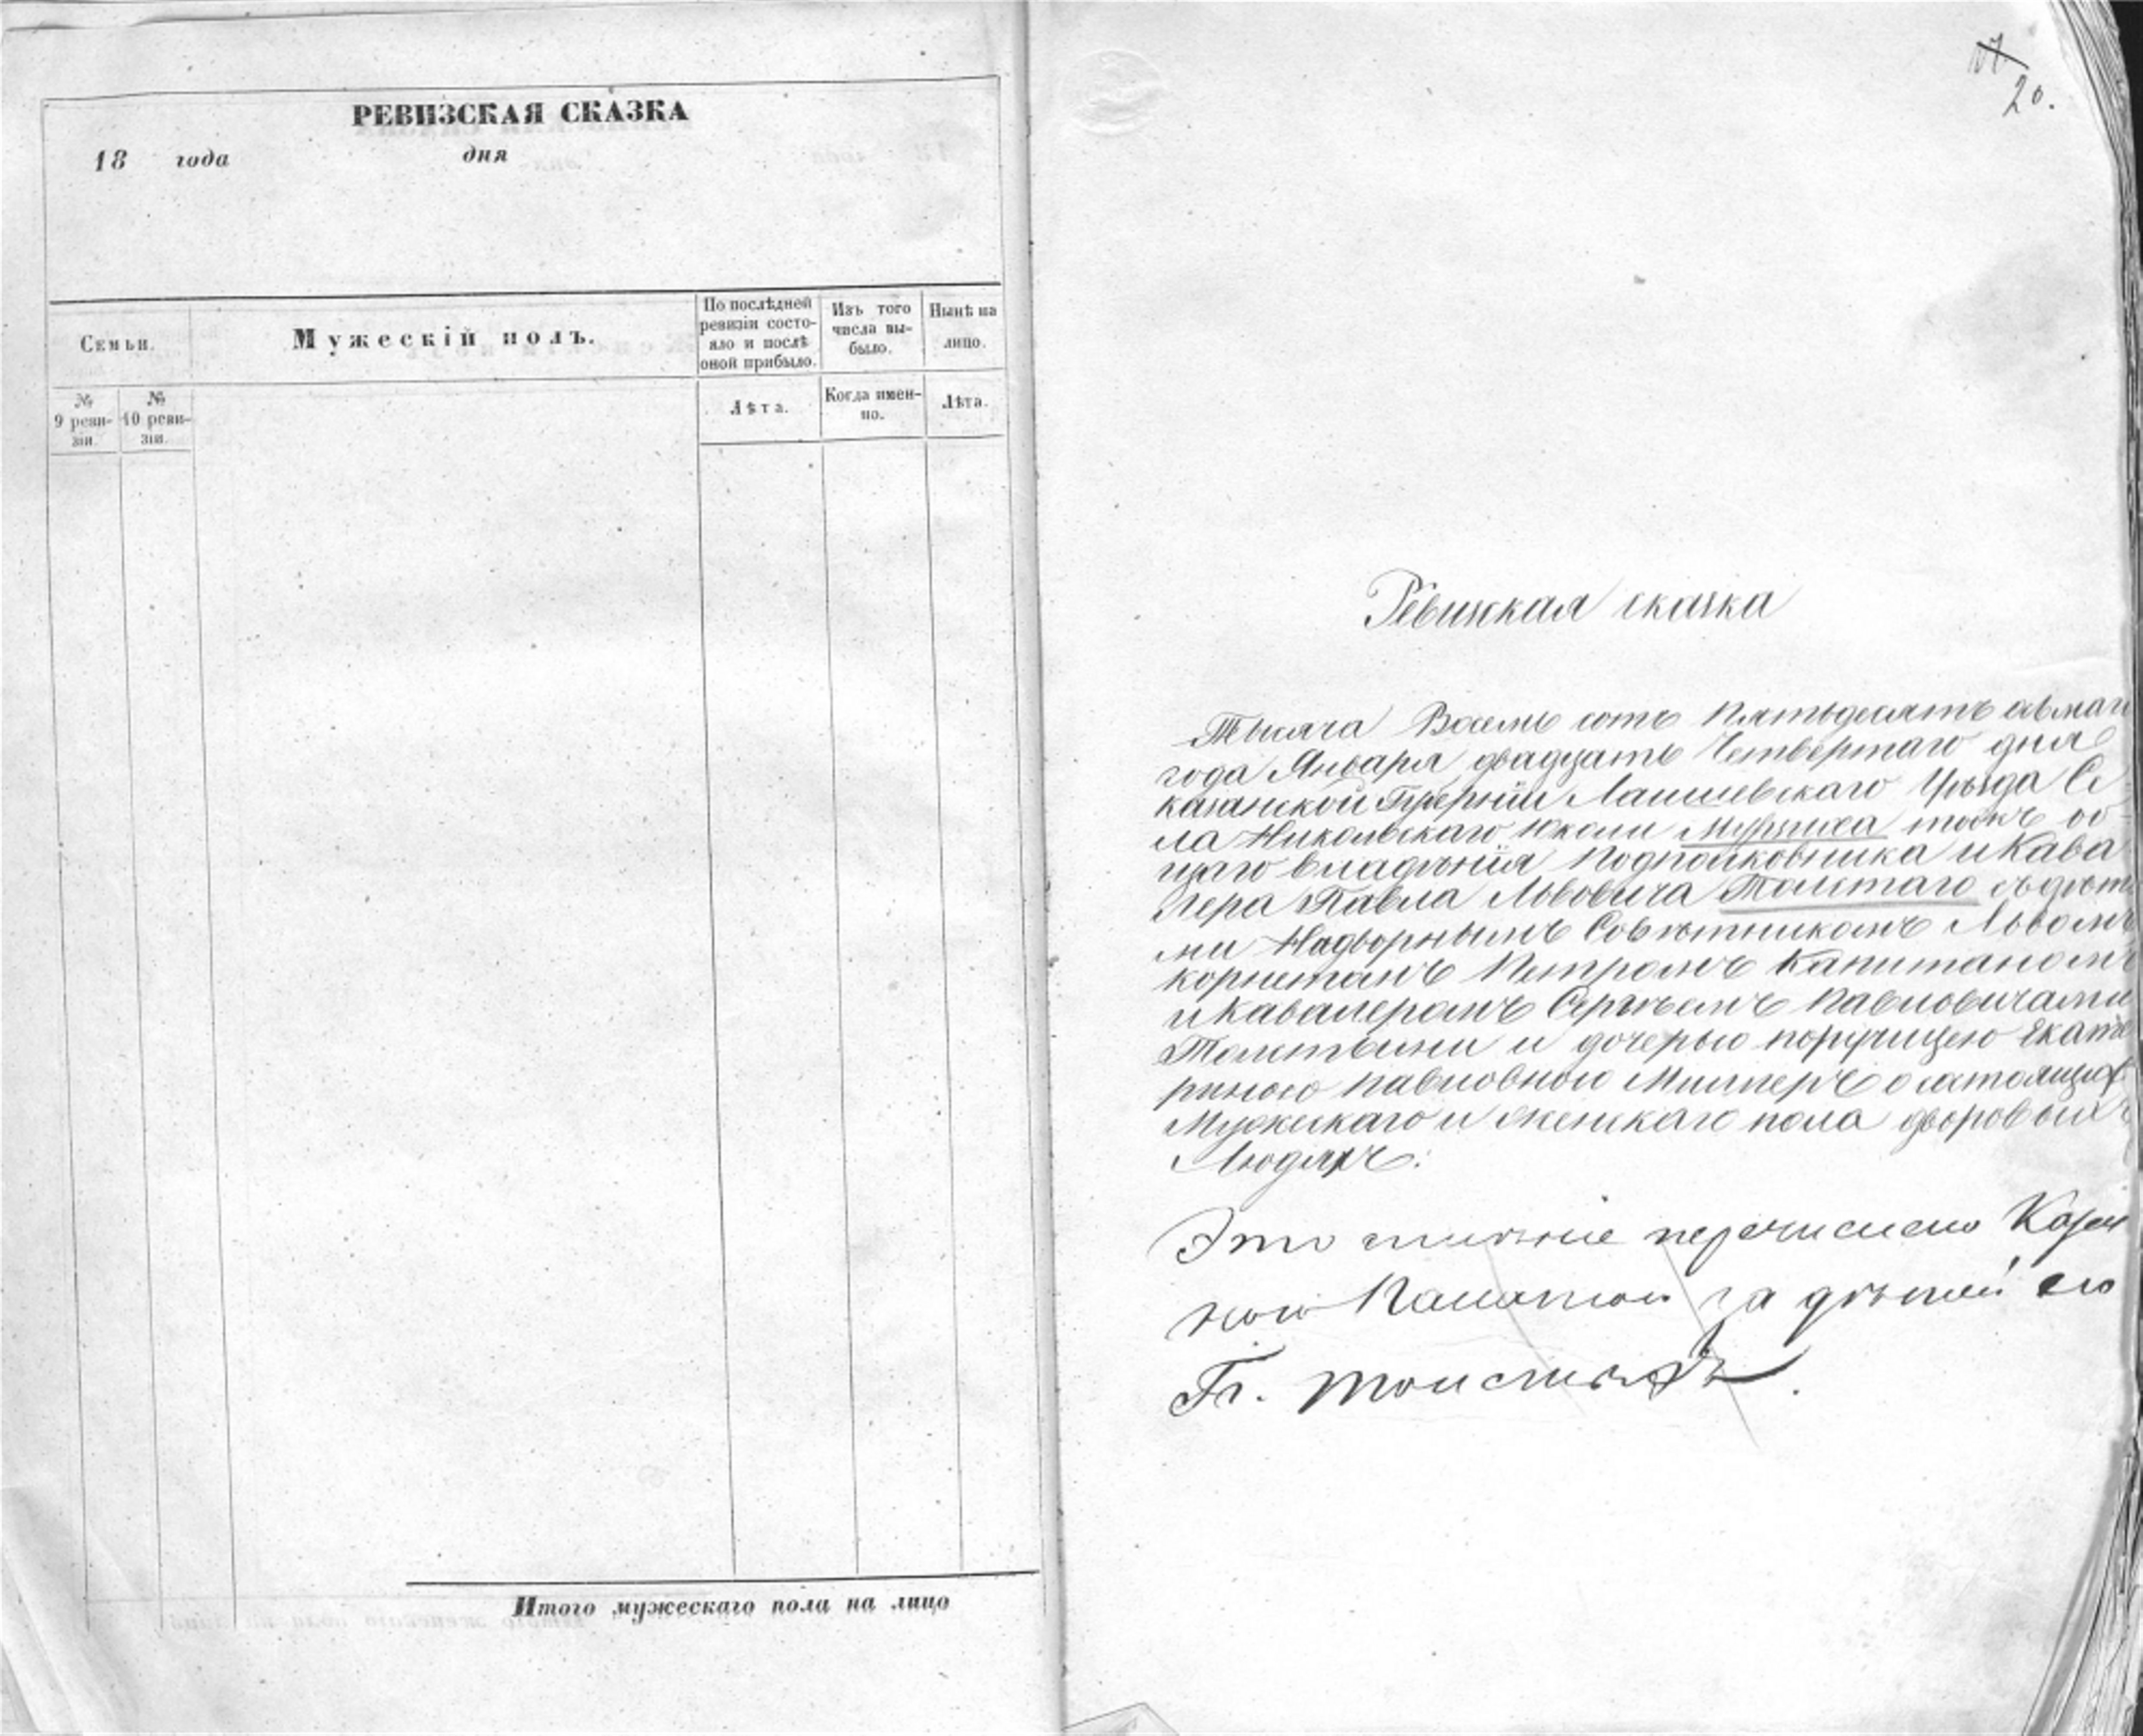 РЕВИЗСКАЯ СКАЗКА
18 года дня
Семьи.
Мужескій полъ.
По послѣдней
ревизіи состо-
яло и послѣ
оной прибыло.
Изъ того
числа вы-
было.
Нынѣ на
лицо.
№
9 реви-
зіи.
№
10 реви-
зіи.
Лѣта.
Когда имен-
но.
Лѣта.
Итого мужескаго пола на лицо
20.
Ревизская сказка
Тысяча Восемь сотъ Пятьдесятъ
года Января двадцать Четвертаго дня
казанской Губерніи Лаишевскаго Уѣзда Се
ла Никольскаго Мурзиха тожъ об-
щаго владѣнія Подполковника и Кава
лера Павла Львовича Толстаго съ дѣть
ми Надворнымъ Совѣтникомъ Львомъ
корнетомъ Петромъ Капитаномъ
и Кавалеромъ Сергѣемъ Павловичами
Толстыми и дочерью поручицею Екате
риною Павловною Миллеръ о состоящихъ
Мужескаго и женскаго пола дворовыхъ
Людяхъ.
Это имѣніе перечислено Казен
ною Палатою за дѣтей его
Гр. Толстыхъ.